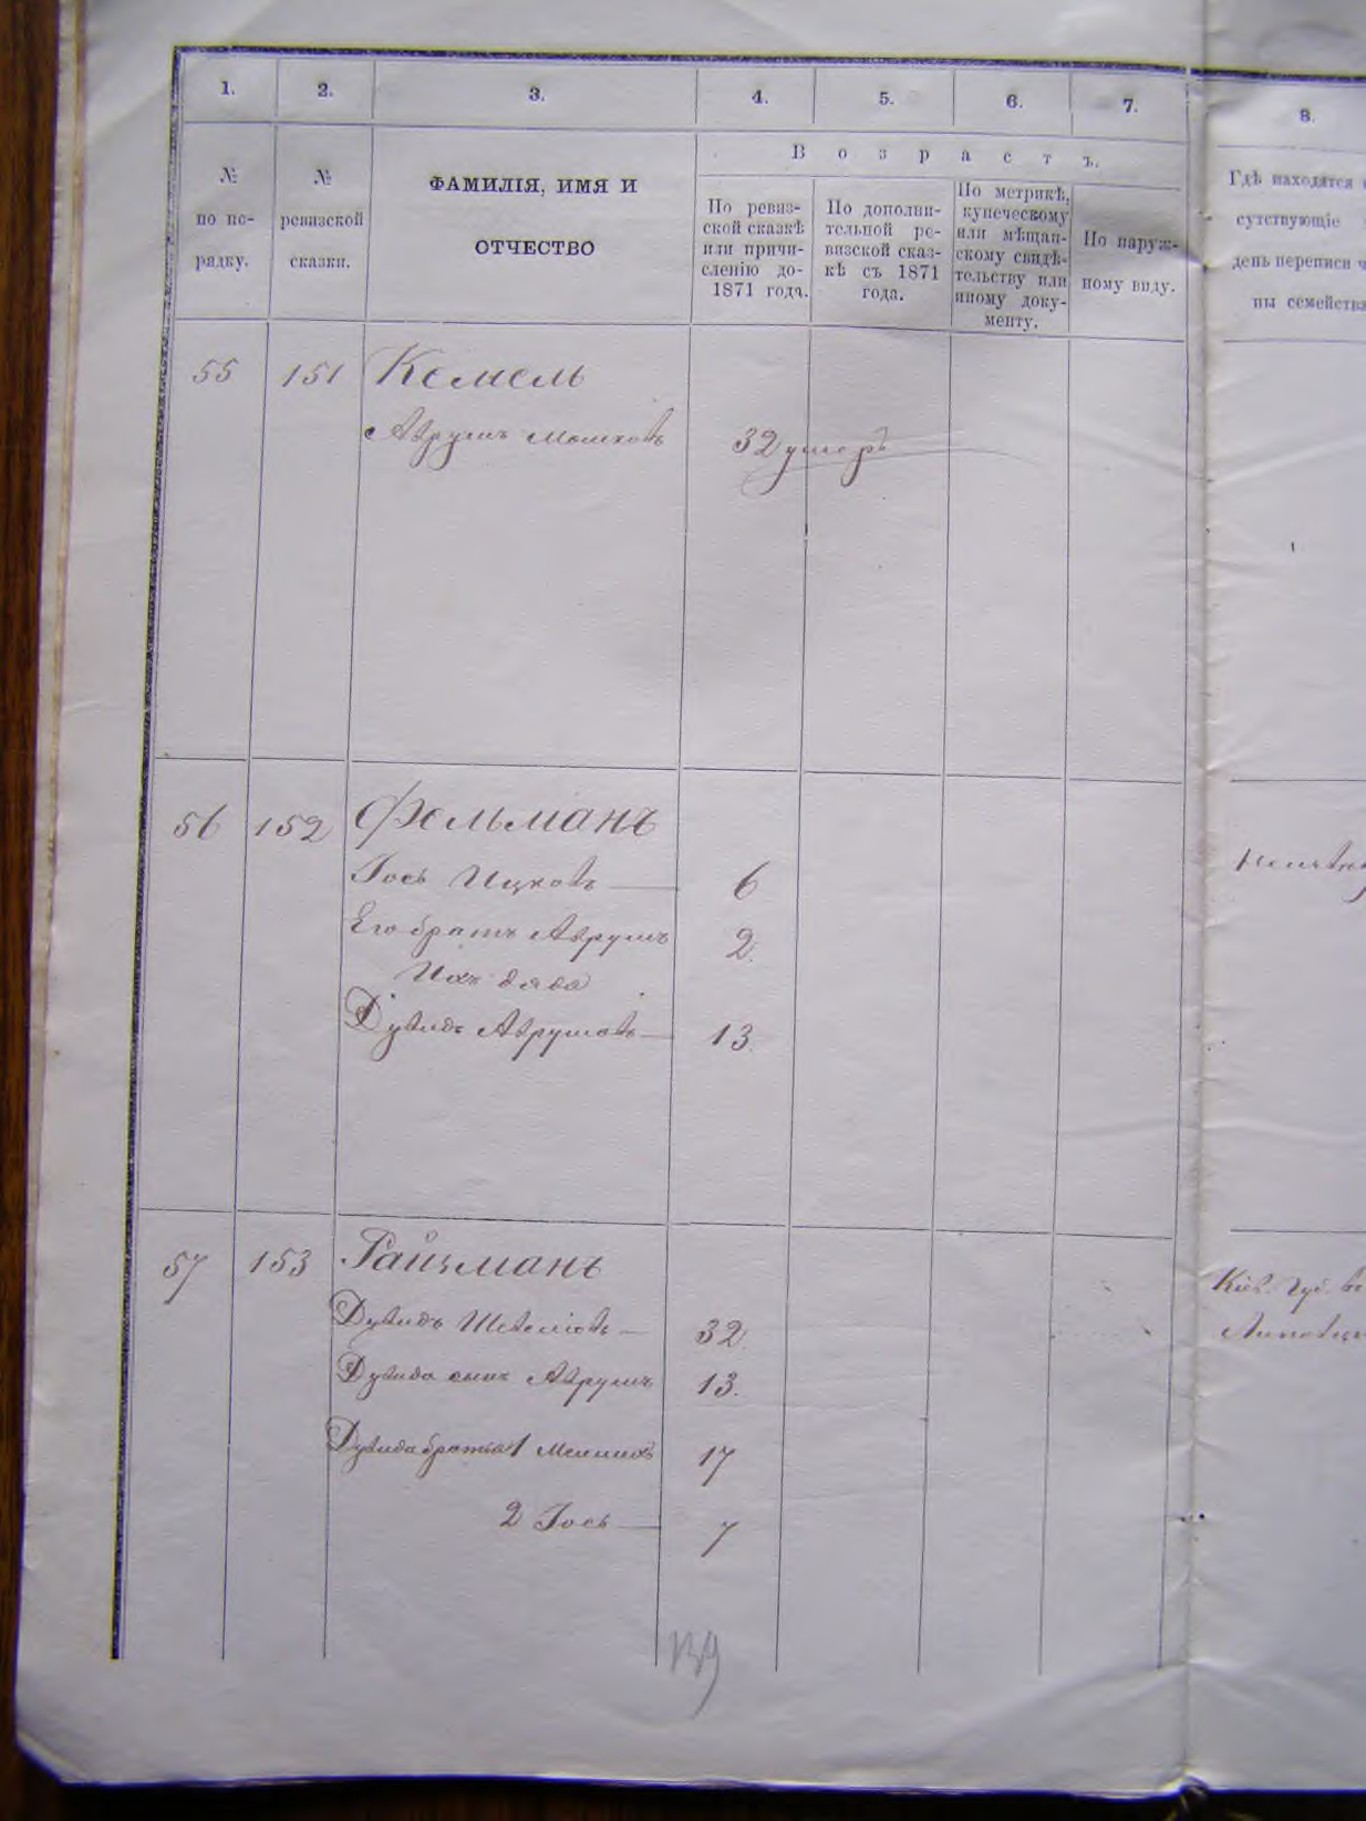 1. 2. 3. 4. 5. 6. 7. 8.
№ по по- рядку.
№ ревизской сказки.
ФАМИЛІЯ, ИМЯ И
ОТЧЕСТВО
Возрастъ.
По ревиз-
ской сказкѣ
или причи-
сленію до-
1871 года.
По дополни-
тельной ре-
визской сказ-
кѣ съ 1871
года.
По метрикѣ,
купеческому
или мѣщан-
скому свидѣ-
тельству или
иному доку-
менту.
По наруж-
ному виду.
Гдѣ находятся
сутствующіе
день переписи ч
ны семейства
55 151 Кемель
Аврумъ Мошковъ 32 умеръ
56 152 Фельманъ
Іось Ицковъ 6
Его братъ Аврумъ 2.
Ихъ дядя
Дувидъ Аврумовъ 13.
57 153 Райзманъ
Дувидъ 32.
Дувида сынъ Аврумъ 13.
Дувида братья 1 17
2 Іось 7
Кіев. Губ.
139